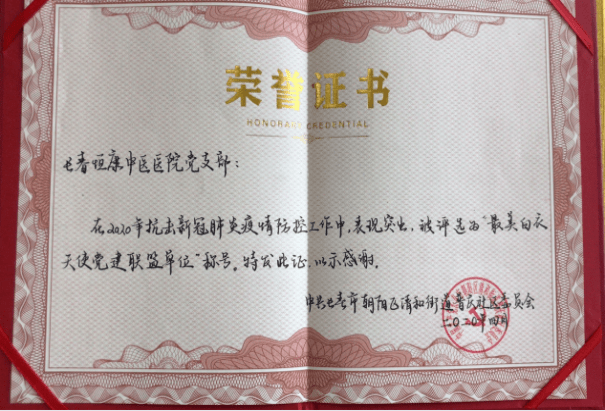 荣誉证书
HONORARY CREDENTIAL
长春恒康中医医院党支部：
在2020年抗击新冠肺炎疫情防控工作中，表现突出，被评选为“最美白衣
天使党建联盟单位”称号。特发此证，以示感谢。
中共长春市朝阳区清和街道普庆社区委员会
二〇二〇年四月